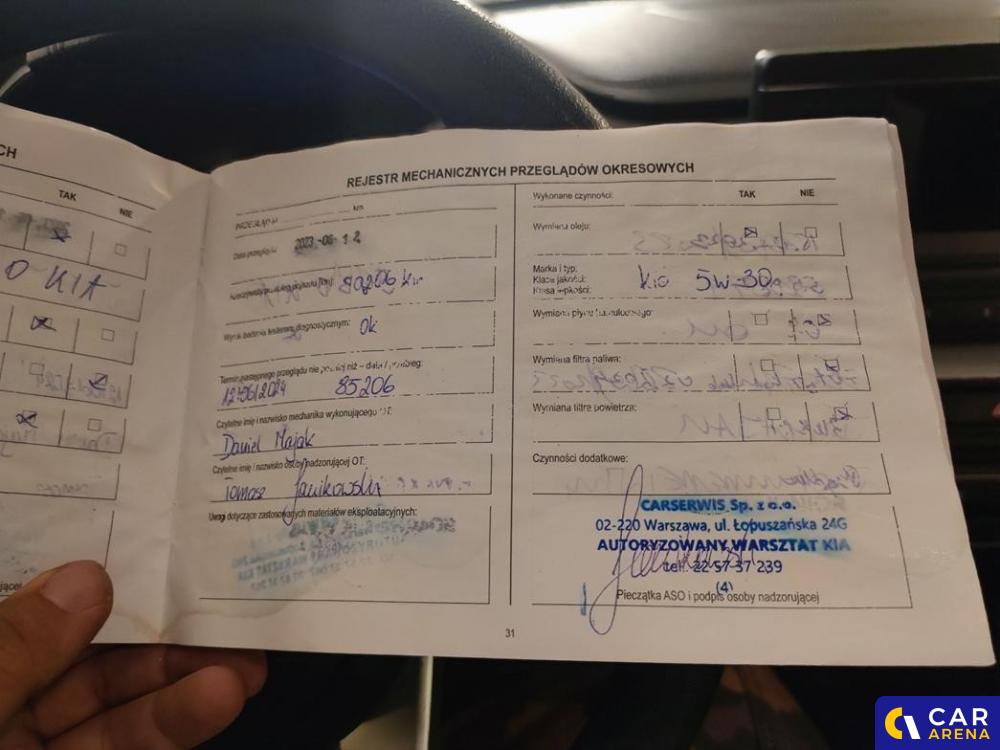 CH
TAK
NIE
O KIA
REJESTR MECHANICZNYCH PRZEGLĄDÓW OKRESOWYCH
km
Data przeglądu: 2023 -06- 1 2
Wynik badania testerem diagnostycznym: Ok
Termin następnego przeglądu nie później niż – data / przebieg:
12/06/2024 85206
Czytelne imię i nazwisko mechanika wykonującego OT:
Daniel Majak
Czytelne imię i nazwisko osoby nadzorującej OT:
Tomasz Janikowski
Uwagi dotyczące zastosowanych materiałów eksploatacyjnych:
Wykonane czynności: TAK NIE
Wymiana oleju:
Marka i typ:
Klasa jakości: Kia 5W-30
Klasa lepkości:
Wymiana płynu hamulcowego:
Wymiana filtra paliwa:
Wymiana filtra powietrza:
Czynności dodatkowe:
CARSERWIS Sp. z o.o.
02-220 Warszawa, ul. Łopuszańska 24G
AUTORYZOWANY WARSZTAT KIA
tel. 22 57 37 239
(4)
Pieczątka ASO i podpis osoby nadzorującej
31
CAR
ARENA